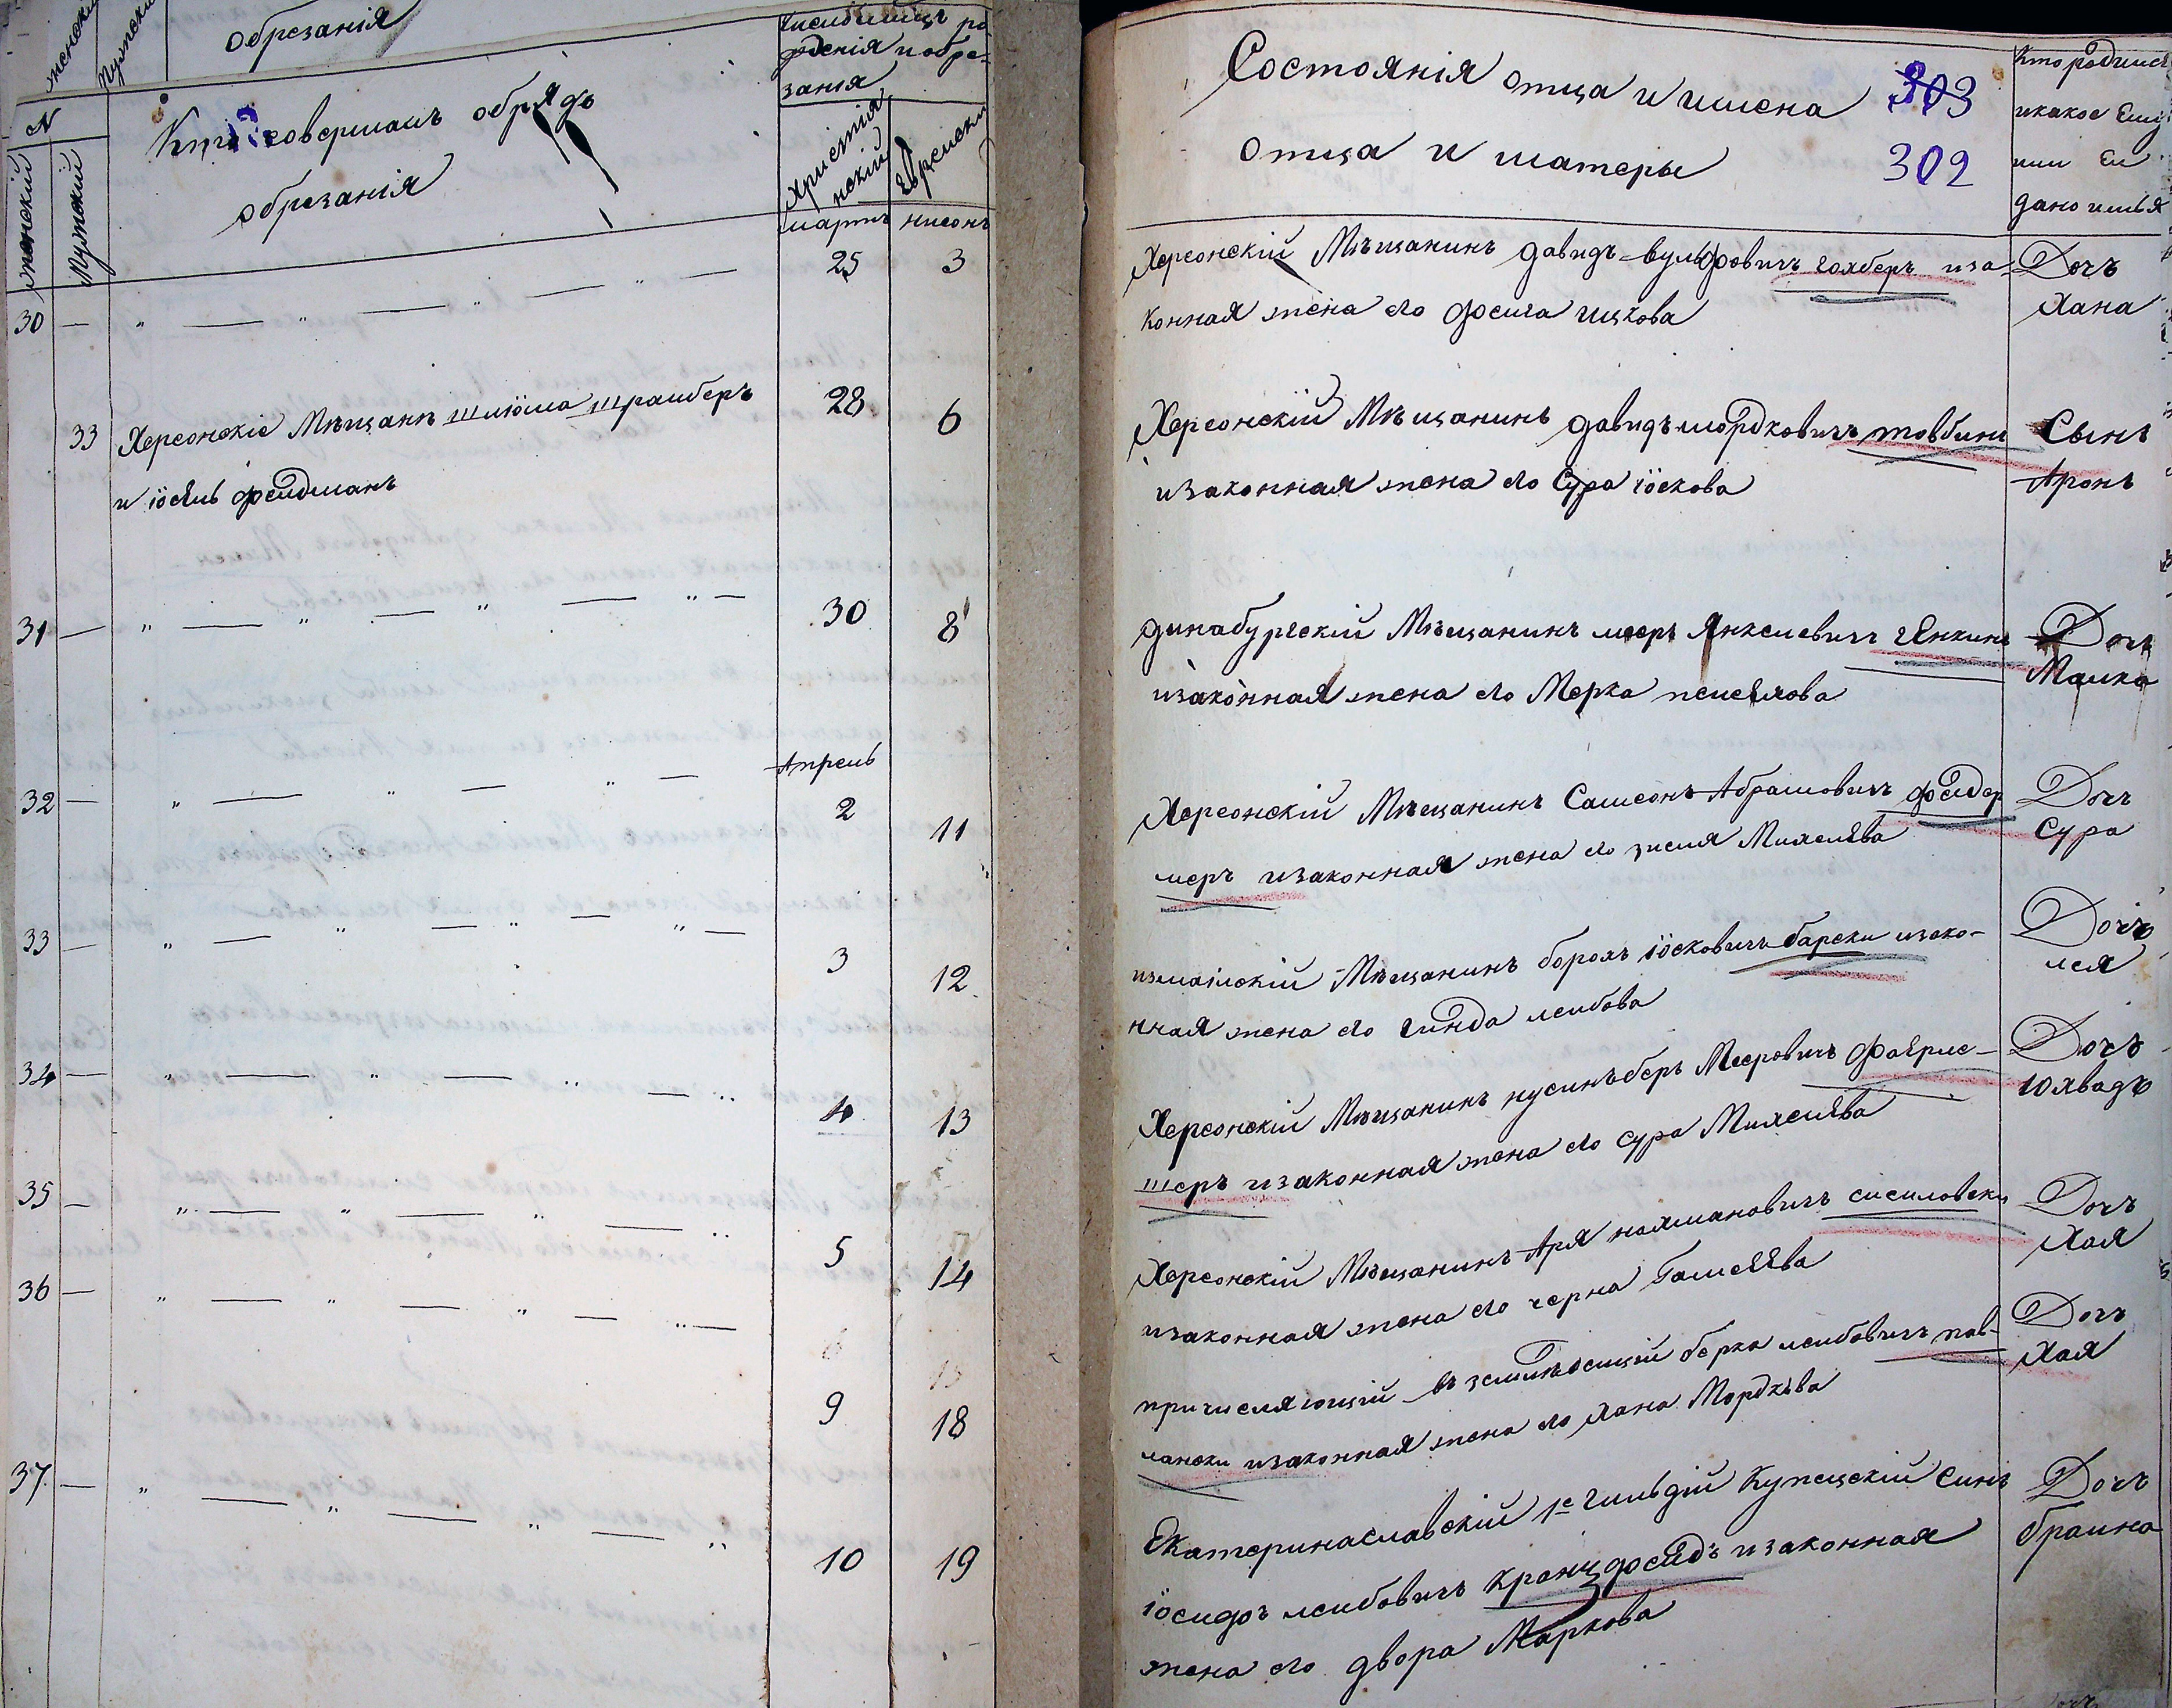 женскій
Мужскій
обрезанія
N
женскій
Мужскій
Кто совершалъ обрядъ
обрезанія
Число и месяцъ ро
жденія и обре-
занія
Христіа
нскій
Еврейски
мартъ нисонъ
30 — " — " — " — 25 3
33 Херсонскіе Мѣщанѣ Шліома Шрайберъ 28 6
и іосель фельдманъ
31 — " — " — " — " — 30 8
Апрель
32 — " — " — " — 2 11
33 — " — " — " — " — 3 12
34 — " — " — " — " 4 13
35 — " — " — " — " 5 14
36 — " — " — " — " — 9 18
37 — " — " — " — " 10 19
Состоянія отца и имена 303
отца и матеры 302
Кто родился
и какое Ему
или Ей
дано имья
Херсонскій Мѣщанинъ давидъ-вульфовичъ голберъ иза-
конная жена его фейга ицкова
Дочъ
Хана
Херсонскій Мѣщанинъ давидъ мордковичъ товбинъ
и законная жена его Сура іоскова
Сынъ
Аронъ
динабургскій Мѣщанинъ меер Янкелевичъ Янкинъ
изаконная жена его Мерка
Дочъ
Малка
Херсонскій Мѣщанинъ Самсонъ Абрамовичъ фельдер
меръ изаконная жена его зисля Михелева
Дочъ
Сура
измаілскій Мѣщанинъ борохъ іосковичъ барски изако-
нная жена его гинда лейбова
Дочъ
лея
Херсонскій Мѣщанинъ нусинъ беръ Мееровичъ Фаерме-
шеръ изаконная жена его сура Михелева
Дочъ
юхвадъ
Херсонскій Мѣщанинъ Аря нахмановичъ сисиловски
изаконная жена его черна
Дочъ
Хая
причисляющій въ земледелцій берко лейбовичъ пав-
лански изаконная жена его хана Мордкова
Дочъ
Хая
Екатеринаславскій 1е гильдій Купецскій Синъ
іосидоръ лейбовичъ изаконная
жена его двора Маркова
Дочъ
браина